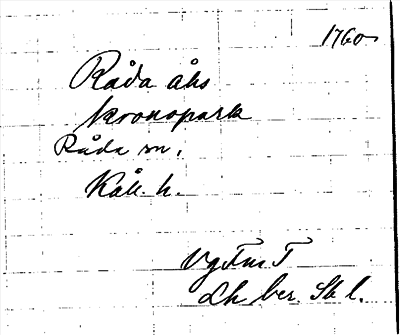 1760
Råda ås
kronopark
Råda sn.
Kåll. h.
VgFmT
Lh ber. Sk l.